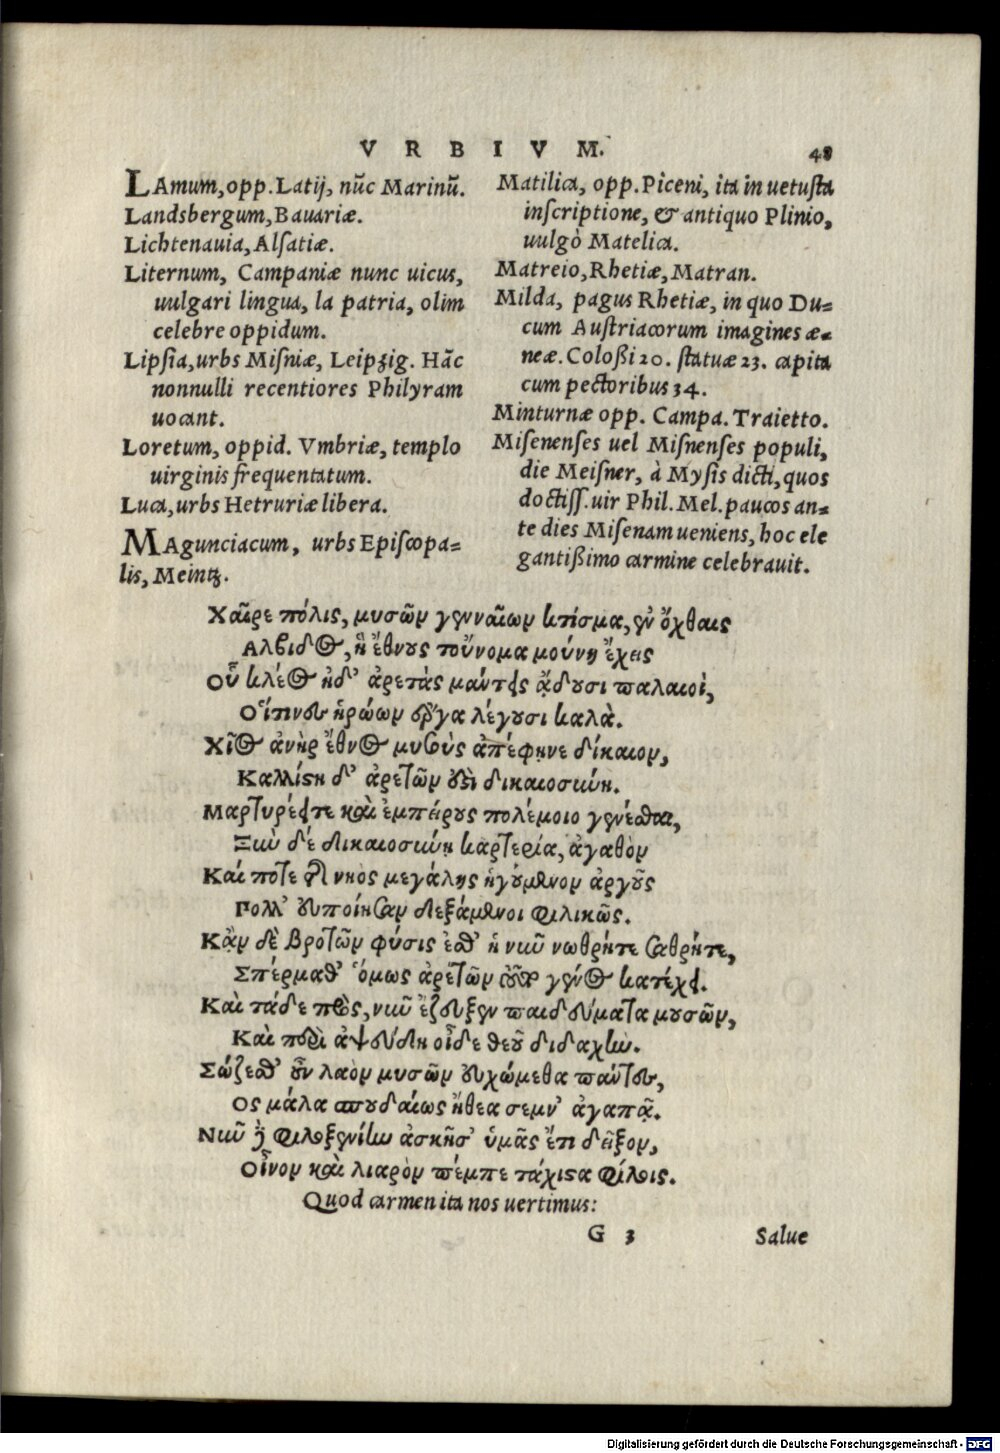 VRBIVM. 48
LAmum, opp. Latij, nũc Marinũ.
Landsbergum, Bauariæ.
Lichtenauia, Alſatiæ.
Liternum, Campaniæ nunc uicus,
uulgari lingua, la patria, olim
celebre oppidum.
Lipſia, urbs Miſniæ, Leipzig. Hãc
nonnulli recentiores Philyram
uocant.
Loretum, oppid. Vmbriæ, templo
uirginis frequentatum.
Luca, urbs Hetruriæ libera.
MAgunciacum, urbs Epiſcopa-
lis, Meintz.
Matilica, opp. Piceni, ita in uetuſta
inſcriptione, & antiquo Plinio,
uulgò Matelica.
Matreio, Rhetiæ, Matran.
Milda, pagus Rhetiæ, in quo Du-
cum Auſtriacorum imagines æ-
neæ. Coloßi 20. ſtatuæ 23. capita
cum pectoribus 34.
Minturnæ opp. Campa. Traietto.
Miſenenſes uel Miſnenſes populi,
die Meiſner, à Myſis dicti, quos
doctiſſ. uir Phil. Mel. paucos an-
te dies Miſenam ueniens, hoc ele
gantißimo carmine celebrauit.
Χαῖρε πόλις, μυσῶν γενναίων κτίσμα, ἐν ὄχθαις
Αλβιδος, ἣ ἔθνους τοὔνομα μούνη ἔχεις
Οὗ κλέος ἠδ' ἀρετὰς μάντεις ᾄδουσι παλαιοὶ,
Οἵτινες ἡρώων ἔργα λέγουσι καλὰ.
Χῖος ἀνὴρ ἔθνος μυσοὺς ἀπέφηνε δίκαιον,
Καλλίστη δ' ἀρετῶν ἐστὶ δικαιοσύνη.
Μαρτυρέει τε καὶ ἐμπείρους πολέμοιο γενέσθαι,
Ξὺν δέ δικαιοσύνῃ καρτερία, ἀγαθὸν
Καί ποτε νηὸς μεγάλης ἡγούμενον ἀργοῦς
Πολλ' εὐποίησαν δεξάμενοι φιλικῶς.
Κἂν δὲ βροτῶν φύσις ἐσθ' ἡ νῦν νωθρή τε σαθρή τε,
Σπέρμαθ' ὅμως ἀρετῶν γένος κατέχει.
Καὶ τάδε πρὸς, νῦν ἔζευξεν παιδεύματα μουσῶν,
Καὶ περὶ ἀψεύδη οἶδε θεοῦ διδαχὴν.
Σώζεσθ' οὖν λαὸν μυσῶν εὐχώμεθα πάντες,
Ος μάλα σπουδαίως ἤθεα σεμν' ἀγαπᾷ.
Νῦν δὲ φιλοξενίην ἀσκῆσ' ὑμᾶς ἔτι δεῖξον,
Οἶνον καὶ λιαρὸν πέμπε τάχιστα φίλοις.
Quod carmen ita nos uertimus:
G 3 Salue
Digitalisierung gefördert durch die Deutsche Forschungsgemeinschaft - DFG